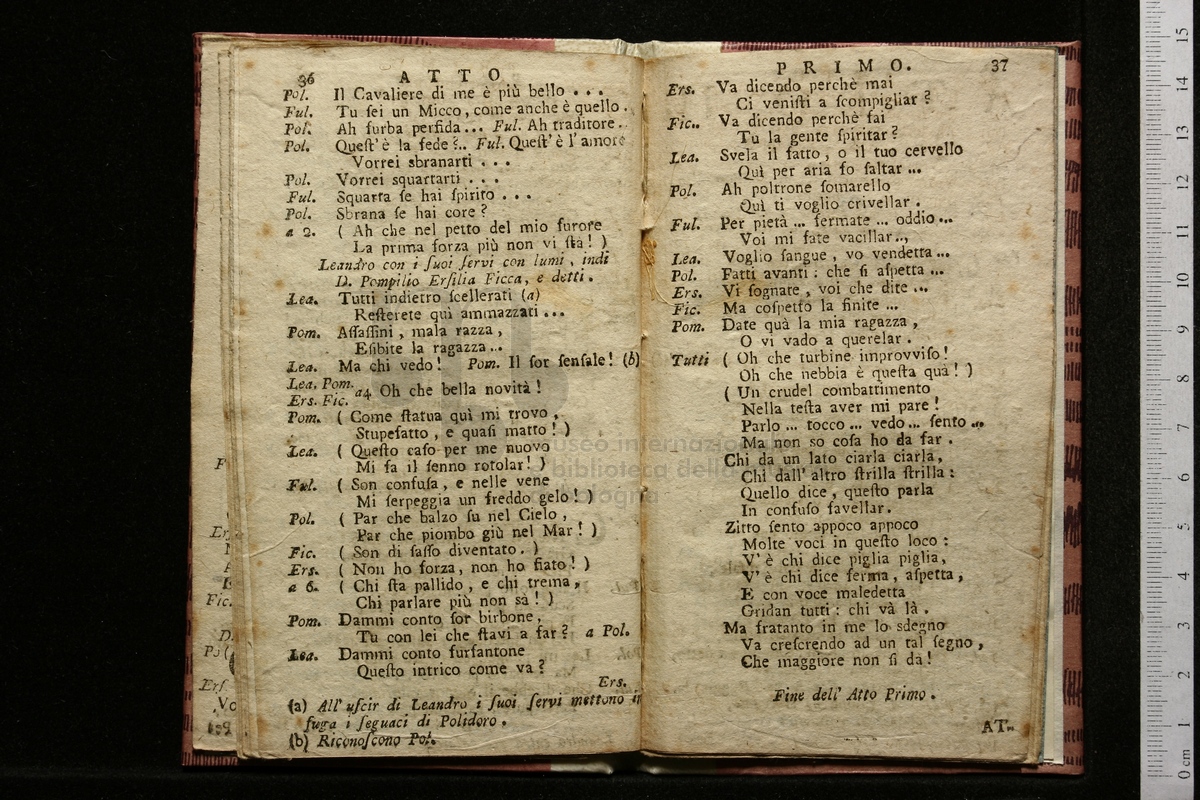 36 ATTO
Pol. Il Cavaliere di me è più bello . . .
Ful. Tu ſei un Micco, come anche è quello .
Pol. Ah furba perfida... Ful. Ah traditore..
Pol. Queſt' è la fede ?.. Ful. Queſt' è l' amore
Vorrei sbranarti . . .
Pol. Vorrei squartarti . . .
Ful. Squarta ſe hai ſpirito . . .
Pol. Sbrana ſe hai core ?
a 2. ( Ah che nel petto del mio furore
La prima forza più non vi ſta ! )
Leandro con i ſuoi ſervi con lumi , indi
D. Pompilio Erſilia Ficca, e detti .
Lea. Tutti indietro ſcellerati (a)
Reſterete quì ammazzati ...
Pom. Aſſaſſini , mala razza ,
Eſibite la ragazza ...
Lea. Ma chi vedo ! Pom. Il ſor ſenſale ! (b)
Lea. Pom.
Ers. Fic. a4. Oh che bella novità !
Pom. ( Come ſtatua quì mi trovo ,
Stupefatto , e quaſi matto ! )
Lea. ( Queſto caſo per me nuovo
Mi fa il ſenno rotolar ! )
Ful. ( Son confuſa , e nelle vene
Mi ſerpeggia un freddo gelo ! )
Pol. ( Par che balzo ſu nel Cielo ,
Par che piombo giù nel Mar ! )
Fic. ( Son di ſaſſo diventato . )
Ers. ( Non ho forza, non ho fiato ! )
a 6. ( Chi ſta pallido , e chi trema ,
Chi parlare più non sà ! )
Pom. Dammi conto ſor birbone ,
Tu con lei che ſtavi a far ? a Pol.
Lea. Dammi conto furfantone
Queſto intrico come va ?
Ers.
(a) All' uſcir di Leandro i ſuoi ſervi mettono in
fuga i ſeguaci di Polidoro .
(b) Riconoſcono Pol.
PRIMO. 37
Ers. Va dicendo perchè mai
Ci veniſti a ſcompigliar ?
Fic.. Va dicendo perchè fai
Tu la gente ſpiritar ?
Lea. Svela il fatto , o il tuo cervello
Quì per aria fo ſaltar ...
Pol. Ah poltrone ſomarello
Quì ti voglio crivellar .
Ful. Per pietà ... fermate ... oddio ...
Voi mi fate vacillar..,
Lea. Voglio ſangue , vo vendetta ...
Pol. Fatti avanti : che ſi aſpetta ...
Ers. Vi ſognate , voi che dite ...
Fic. Ma coſpetto la finite ...
Pom. Date quà la mia ragazza ,
O vi vado a querelar .
Tutti ( Oh che turbine improvviſo !
Oh che nebbia è queſta quà ! )
( Un crudel combattimento
Nella teſta aver mi pare !
Parlo ... tocco ... vedo ... ſento ...
Ma non so coſa ho da far .
Chi da un lato ciarla ciarla ,
Chi dall' altro ſtrilla ſtrilla :
Quello dice , queſto parla
In confuſo favellar .
Zitto ſento appoco appoco
Molte voci in queſto loco :
V' è chi dice piglia piglia ,
V' è chi dice ferma , aſpetta ,
E con voce maledetta
Gridan tutti : chi và là .
Ma fratanto in me lo sdegno
Va creſcrendo ad un tal ſegno ,
Che maggiore non ſi dà !
Fine dell' Atto Primo .
AT-